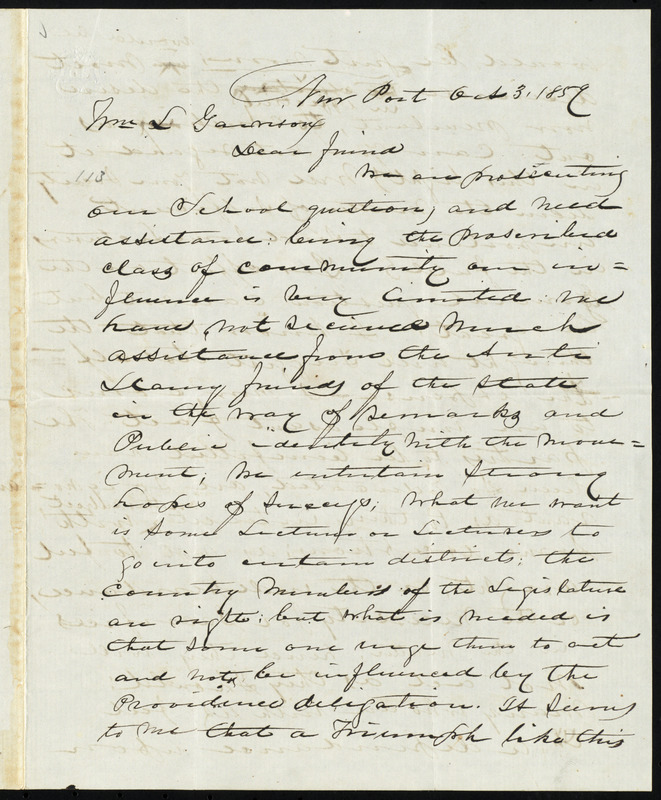 New Port Oct 3, 1859
Wm L Garrison
Dear friend
113
We are prosecuting
our School question, and need
assistance: being the proscribed
class of community our in=
fluence is very limited: we
have not recieved much
assistance from the Anti
Slavery friends of the State
in the way of remarks and
Public identity with the move=
ment; we entertain strong
hopes of Success; what we want
is some Lecturer or Lecturers to
go into certain districts; the
Country Members of the Legislature
are right: but what is needed is
that some one urge them to act
and not be influenced by the
Providence deligation. It seems
to me that a Triumph like this